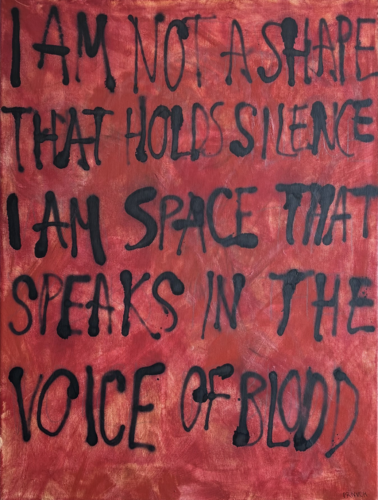 I AM NOT A SHAPE
THAT HOLDS SILENCE
I AM SPACE THAT
SPEAKS IN THE
VOICE OF BLOOD